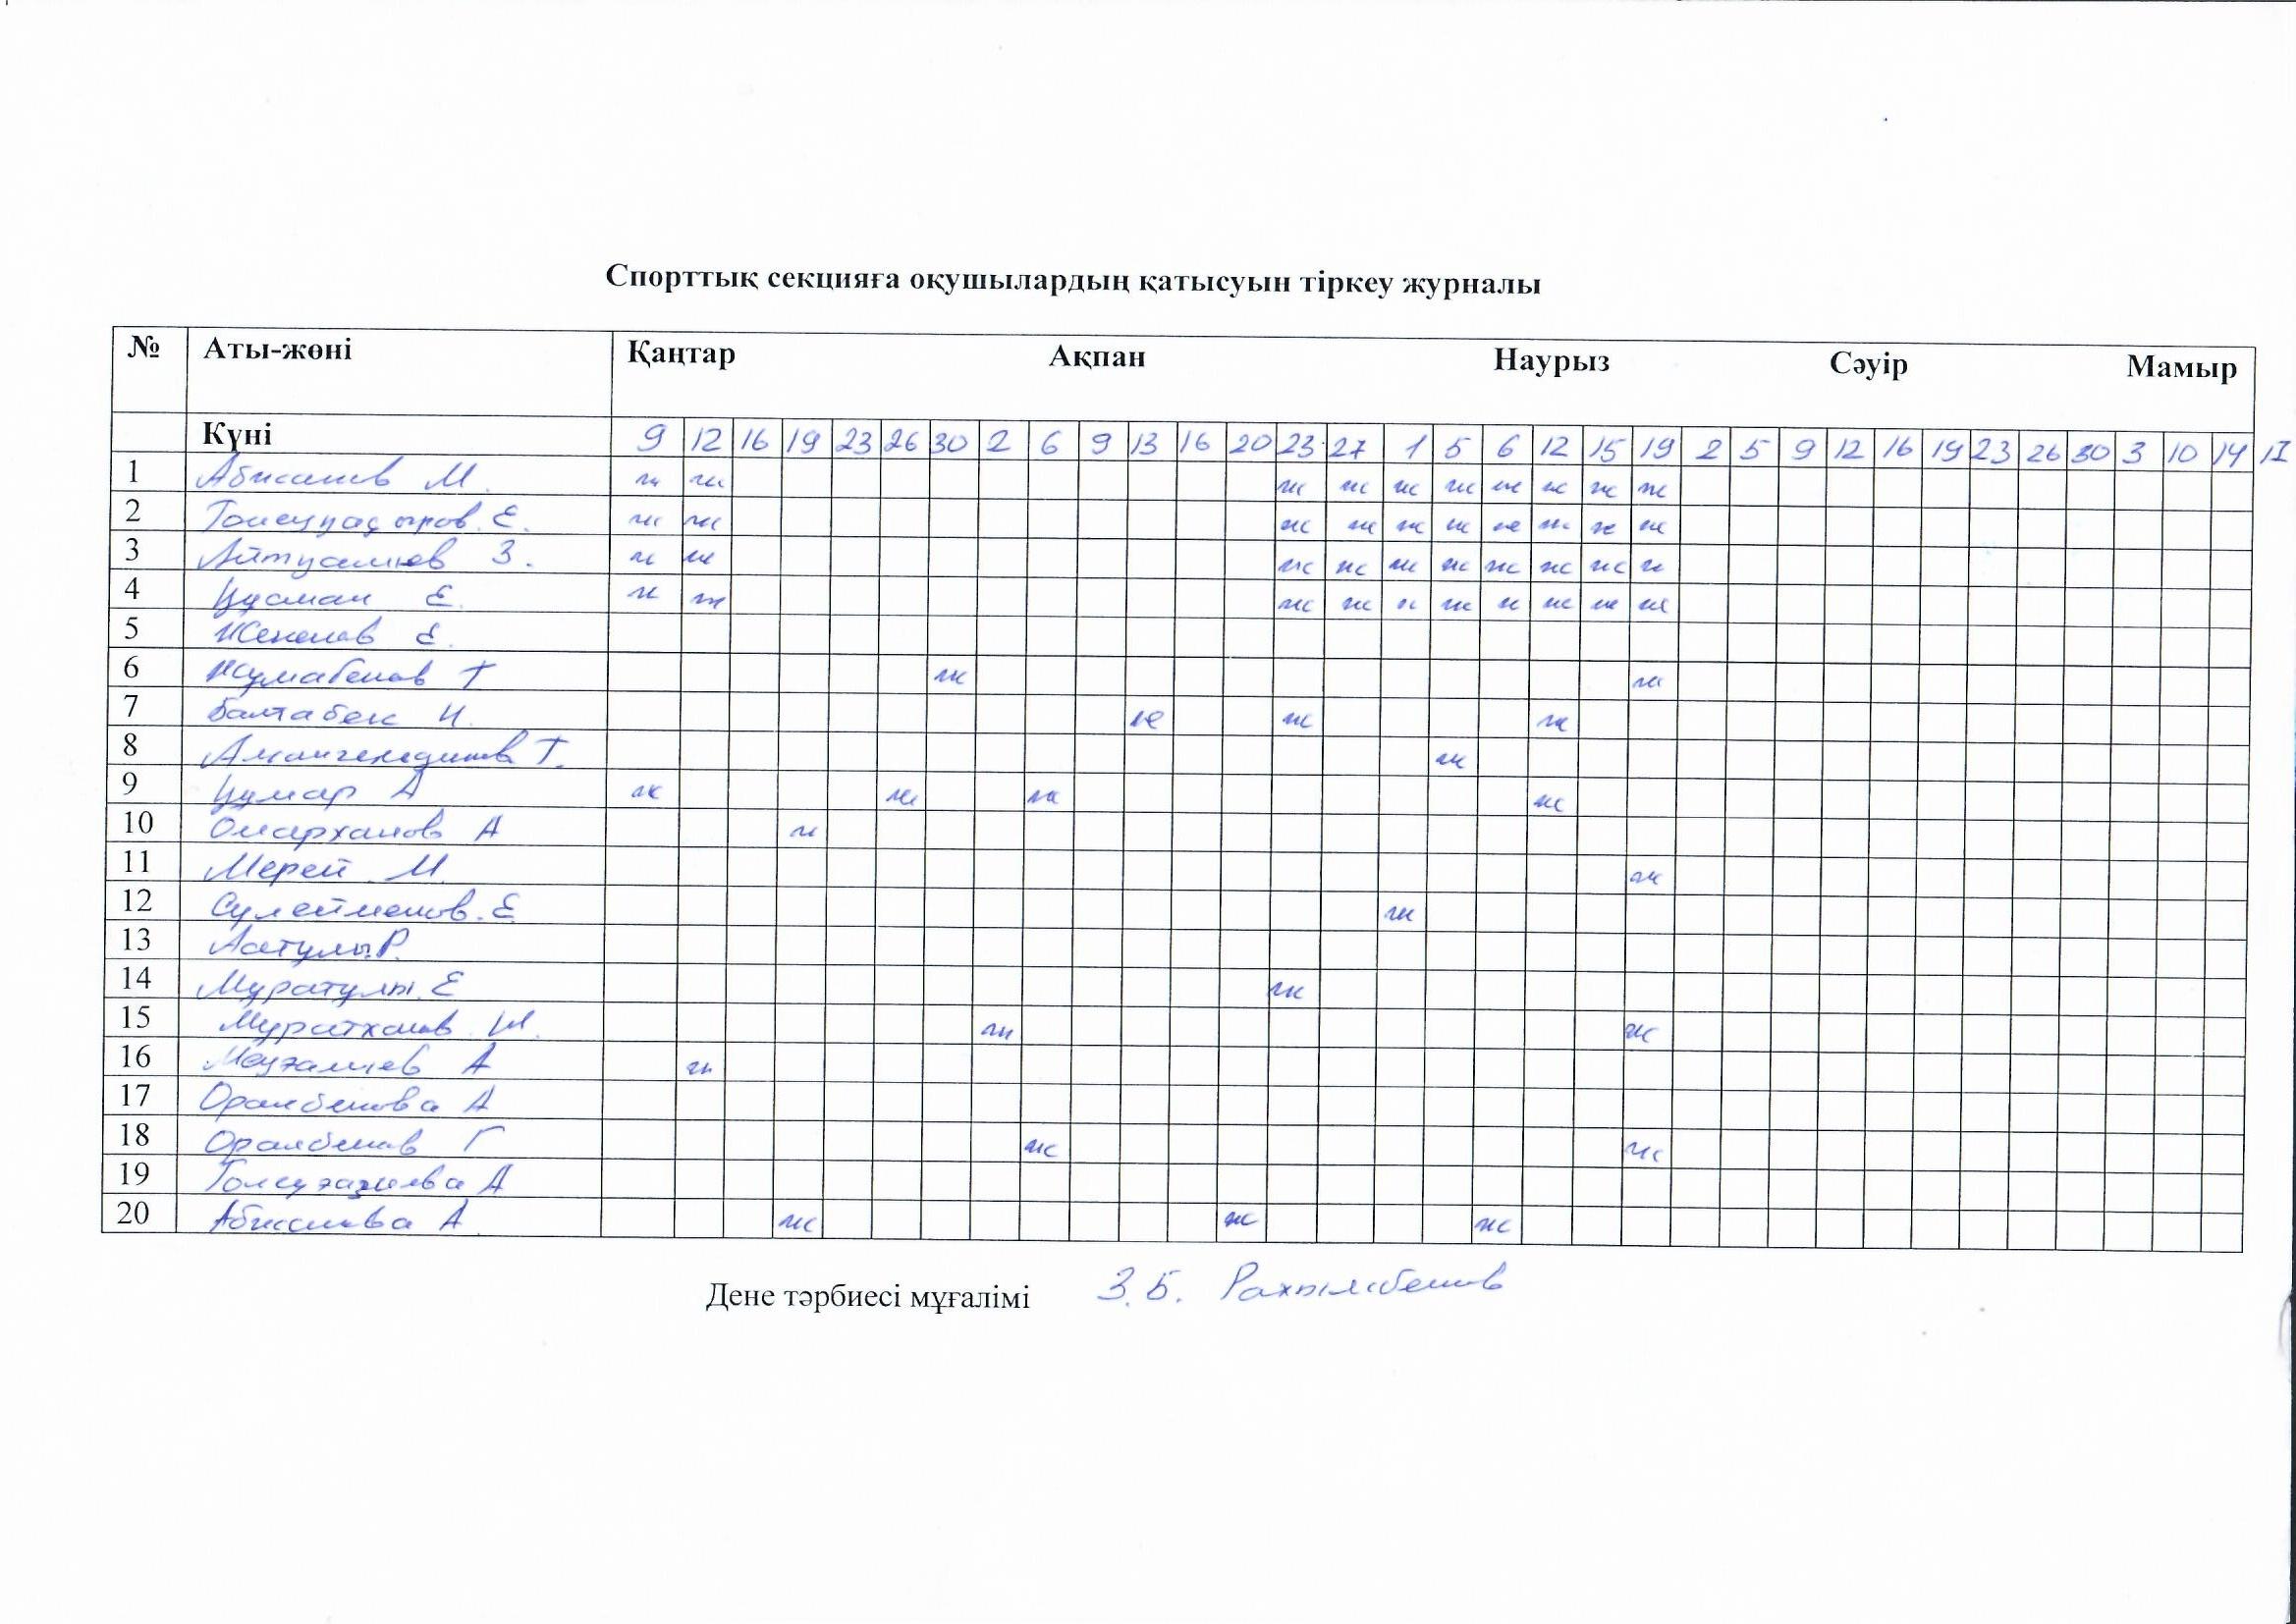 Спорттық секцияға оқушылардың қатысуын тіркеу журналы
№ Аты-жөні Қаңтар Ақпан Наурыз Сәуір Мамыр
Күні 9 12 16 19 23 26 30 2 6 9 13 16 20 23 27 1 5 6 12 15 19 2 5 9 12 16 19 23 26 30 3 10 14 17
1 М. ж ж ж ж ж ж ж ж ж ж
2 Е. ж ж ж ж ж ж ж ж ж ж
3 Айтуалиев З. ж ж ж ж ж ж ж ж ж ж
4 Құсман Е. ж ж ж ж ж ж ж ж ж ж
5 Е.
6 Жумабеков Т ж ж
7 Балтабек И. ж ж ж
8 Амангелдинов Т. ж
9 Құмар А ж ж ж ж
10 Омарханов А ж
11 Мерей М. ж
12 Сулейменов. Е. ж
13 Р.
14 Мұратұлы. Е ж
15 Муратханов ж ж
16 А ж
17 Оралбекова А
18 Оралбеков Г ж ж
19 А
20 А ж ж ж
Дене тәрбиесі мұғалімі З.Б.